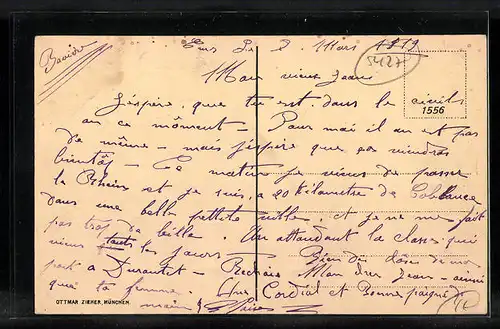 Bavière
Ems Le 2 Mars 1919
5427
Mon vieux Jean
1556
J'éspère que tu est dans le civils
au ce môment - Pour mai il an est pas
de même - mais j'éspère que ça viendras
bientôt - Ce matin je viens de passer
le Rhein et je suis a 20 Kilometre de Coblance
dans une belle petite ville, et je ne me fait
pas trop de bille. An attandant la class qui
vient touts les jours. Bien des chose de ma
part a - Mon cher Jean - ainsi
que ta femme. Une Cordial et Bonne poigné
main
OTTMAR ZIEHER, MÜNCHEN.